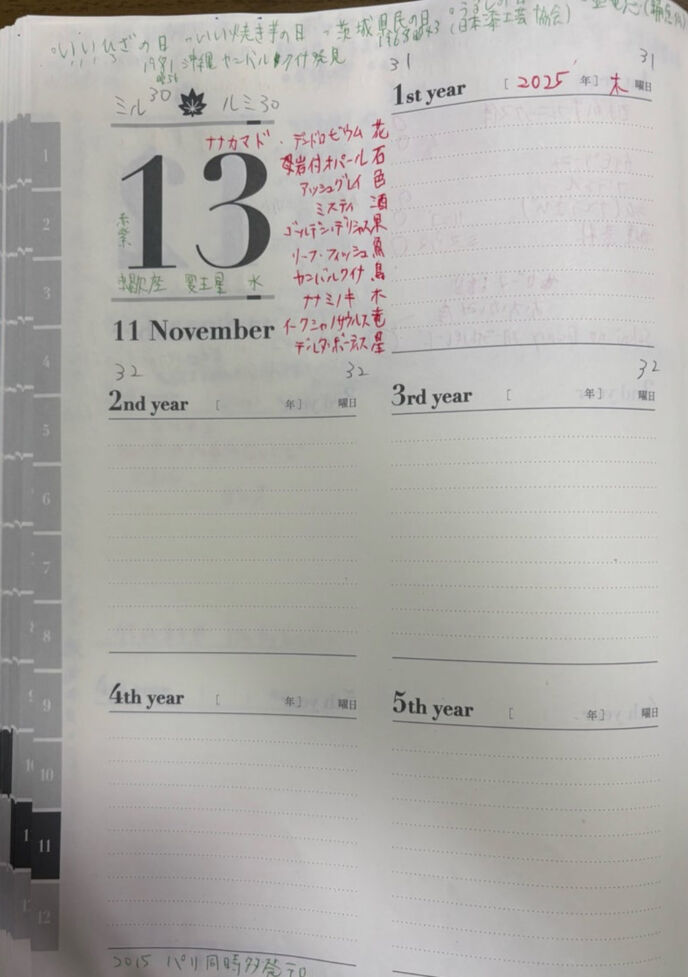 ・いいひざの日 ・いい焼き芋の日 ・茨城県民の日 ・うるしの日
1968 S43 (日本漆工芸協会)
1981 沖縄 ヤンバルクイナ発見
S56
31 31
ミル30 ルミ30
1st year [ 2025 年] 木 曜日
13
ナナカマド・デンドロビウム 花
母岩付オパール 石
アッシュグレイ 色
ミスティ 酒
ゴールデン・デリシャス 果
リーフ・フィッシュ 魚
ヤンバルクイナ 鳥
ナナミノキ 木
イークシャノサウルス 竜
デルタ・ボーティス 星
紫
蠍座 冥王星 水
11 November
32 32 32
2nd year [ 年] 曜日
3rd year [ 年] 曜日
4th year [ 年] 曜日
5th year [ 年] 曜日
2015 パリ同時多発テロ
1
2
3
4
5
6
7
8
9
10
11
12